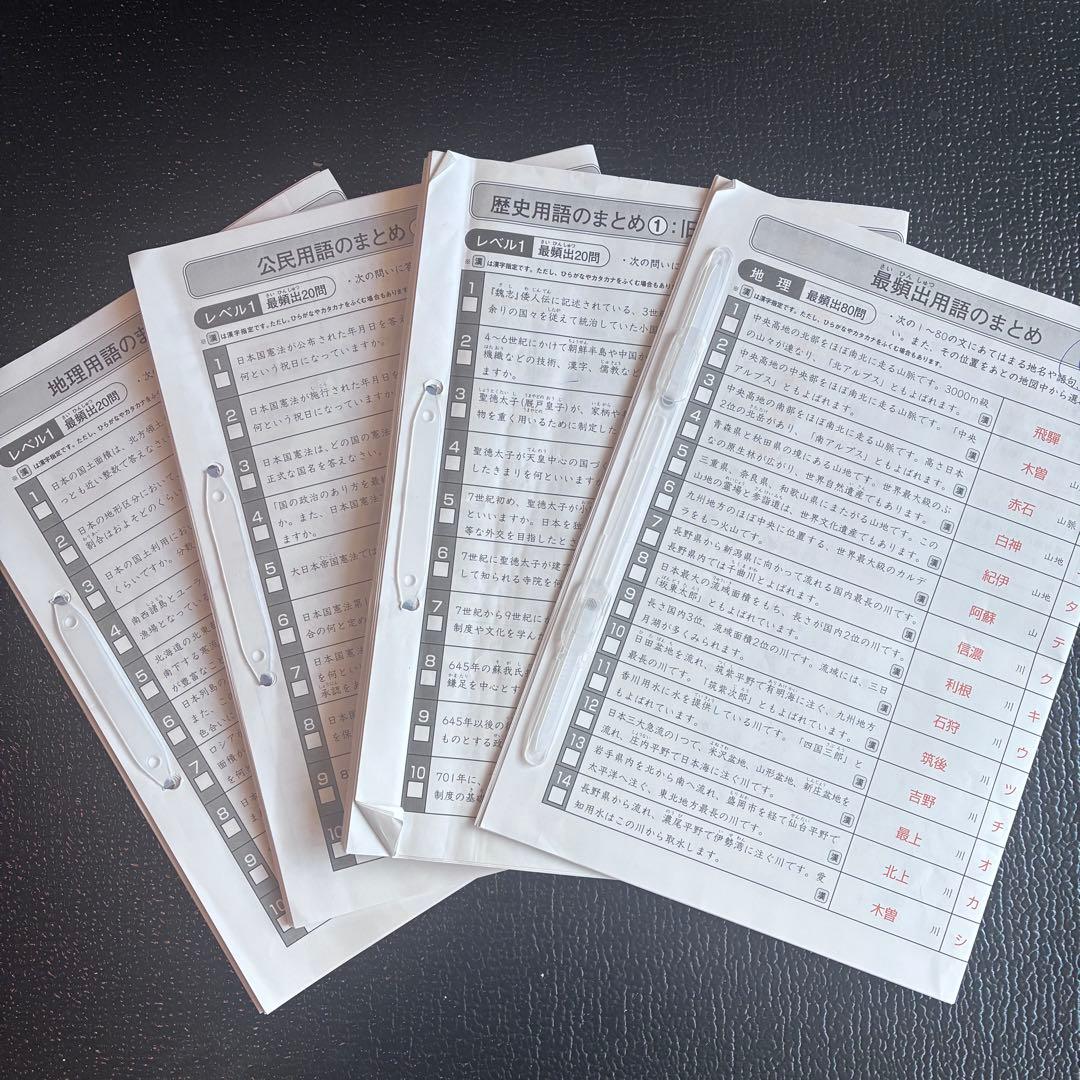 地理用語のま
レベル1 最頻出20問
さい ひん しゅつ
・次
※漢は漢字指定です。ただし、ひらがなやカタカナをふくむ場合もあ
1
日本の国土面積は、北方領土
っとも近い整数で答えなさい
2
日本の地形区分において
割合はおよそどのくらい
3
日本の国土利用にお
くらいですか。分数
4
南西諸島とユー
漁場となっている
5
北海道の北東
南下する寒流
が豊富な
6
日本列島の
また、こ
色合いに
7
ロシア
面積が
を何と
8
9
10
公民用語のまとめ
レベル1 最頻出20問
さい ひん しゅつ
・次の問いに答
※漢は漢字指定です。ただし、ひらがなやカタカナをふくむ場合もあります
1
日本国憲法が公布された年月日を答え
何という祝日になっていますか。
2
日本国憲法が施行された年月日を
何という祝日になっていますか
3
日本国憲法は、どの国の憲法
正式な国名を答えなさい。
4
「国の政治のあり方を最
か。また、日本国憲法
5
大日本帝国憲法では
6
日本国憲法第1
合の何と定め
7
日本国憲法
を何といい
承認をあ
8
日本国
を保
9
10
歴史用語のまとめ①:旧
レベル1 最頻出20問
さい ひん しゅつ
・次の問いに
※漢は漢字指定です。ただし、ひらがなやカタカナをふくむ場合もあり
1
『魏志』倭人伝に記述されている、3世
余りの国々を従えて統治していた小国
2
4〜6世紀にかけて朝鮮半島や中国か
機織などの技術、漢字、儒教など
ますか。
3
聖徳太子(厩戸皇子)が、家柄や
物を重く用いるために制定した
4
聖徳太子が天皇中心の国づ
したきまりを何といいます
5
7世紀初め、聖徳太子が小
といいますか。日本を独
等な外交を目指したとさ
6
7世紀に聖徳太子が建て
して知られる寺院を何
7
7世紀から9世紀に
制度や文化を学んだ
8
645年の蘇我氏
鎌足を中心とす
9
645年以後の
ものとする政
10
701年に、
制度の基礎
最頻出用語のまとめ
さい ひん しゅつ
地 理 最頻出80問
・次の1〜80の文にあてはまる地名や語句
い。また、その位置をあとの地図中から選
※漢は漢字指定です。ただし、ひらがなやカタカナをふくむ場合もあります。
1
中央高地の北部をほぼ南北に走る山脈です。3000m級
の山々が連なり、「北アルプス」ともよばれます。
飛騨
2
中央高地の中央部をほぼ南北に走る山脈です。「中央
アルプス」ともよばれます。
木曽
3
中央高地の南部をほぼ南北に走る山脈です。高さ日本
2位の北岳があり、「南アルプス」ともよばれます。
赤石
山脈
4
青森県と秋田県の境にある山地です。世界最大級のぶ
なの原生林が広がり、世界自然遺産でもあります。
白神
山地
5
三重県、奈良県、和歌山県にまたがる山地です。この
山地の霊場と参詣道は、世界文化遺産でもあります。
紀伊
山地
タ
6
九州地方のほぼ中央に位置する、世界最大級のカルデ
ラをもつ火山です。
阿蘇
山
テ
7
長野県から新潟県に向かって流れる国内最長の川です。
長野県内では千曲川とよばれます。
信濃
川
ク
8
日本最大の流域面積をもち、長さが国内2位の川です。
「坂東太郎」ともよばれています。
利根
川
キ
9
長さ国内3位、流域面積2位の川です。流域には、三日
月湖が多くみられます。
石狩
川
ウ
10
日田盆地を流れ、筑紫平野で有明海に注ぐ、九州地方
最長の川です。「筑紫次郎」ともよばれています。
筑後
川
ツ
11
香川用水に水を提供している川です。「四国三郎」と
もよばれています。
吉野
川
チ
12
日本三大急流の1つで、米沢盆地、山形盆地、新庄盆地を
流れ、庄内平野で日本海に注ぐ川です。
最上
川
オ
13
岩手県内を北から南へ流れ、盛岡市を経て仙台平野で
太平洋へ注ぐ、東北地方最長の川です。
北上
川
カ
14
長野県から流れ、濃尾平野で伊勢湾に注ぐ川です。愛
知用水はこの川から取水します。
木曽
川
シ